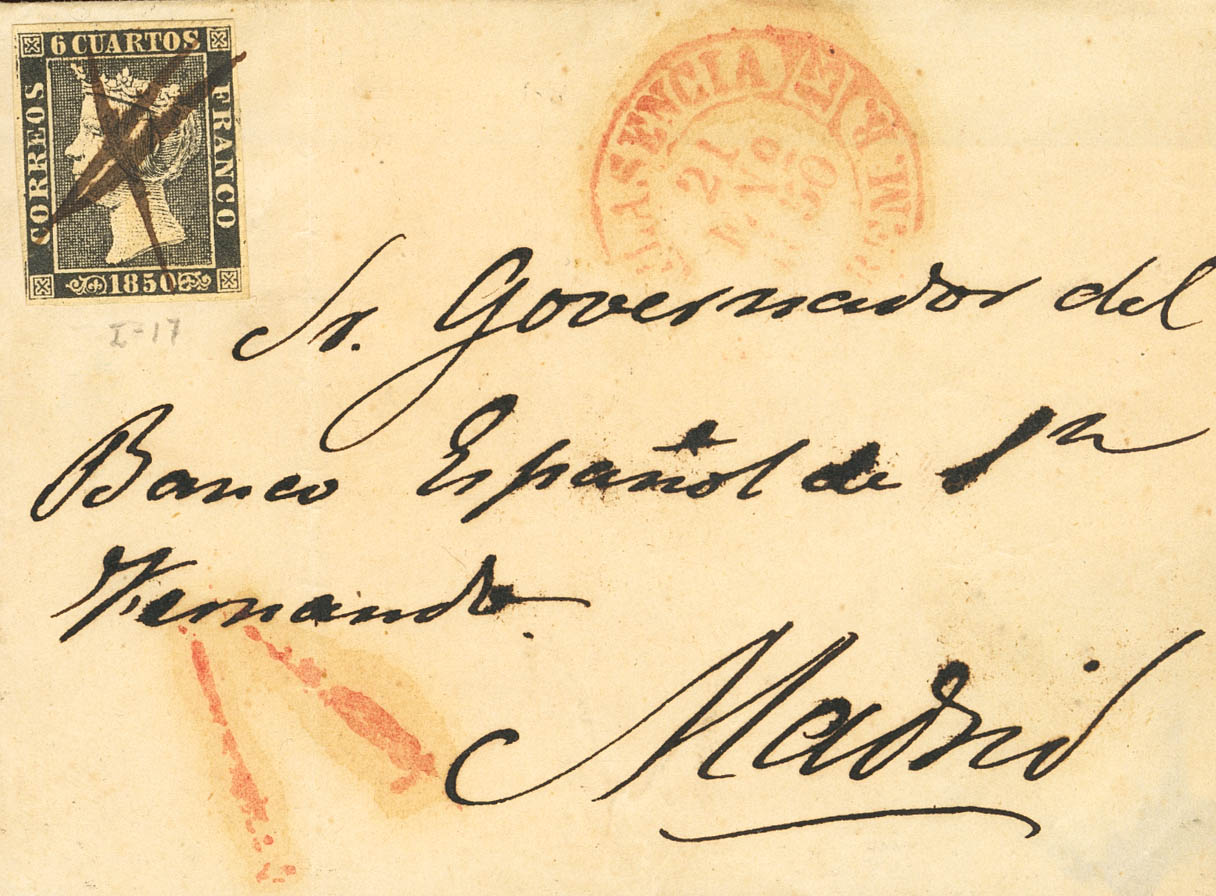 6 CUARTOS
CORREOS
FRANCO
1850
I-17
PLASENCIA
21
ENO
1850
Sr. Governador del
Banco Español de Sn
Fernando.
Madrid